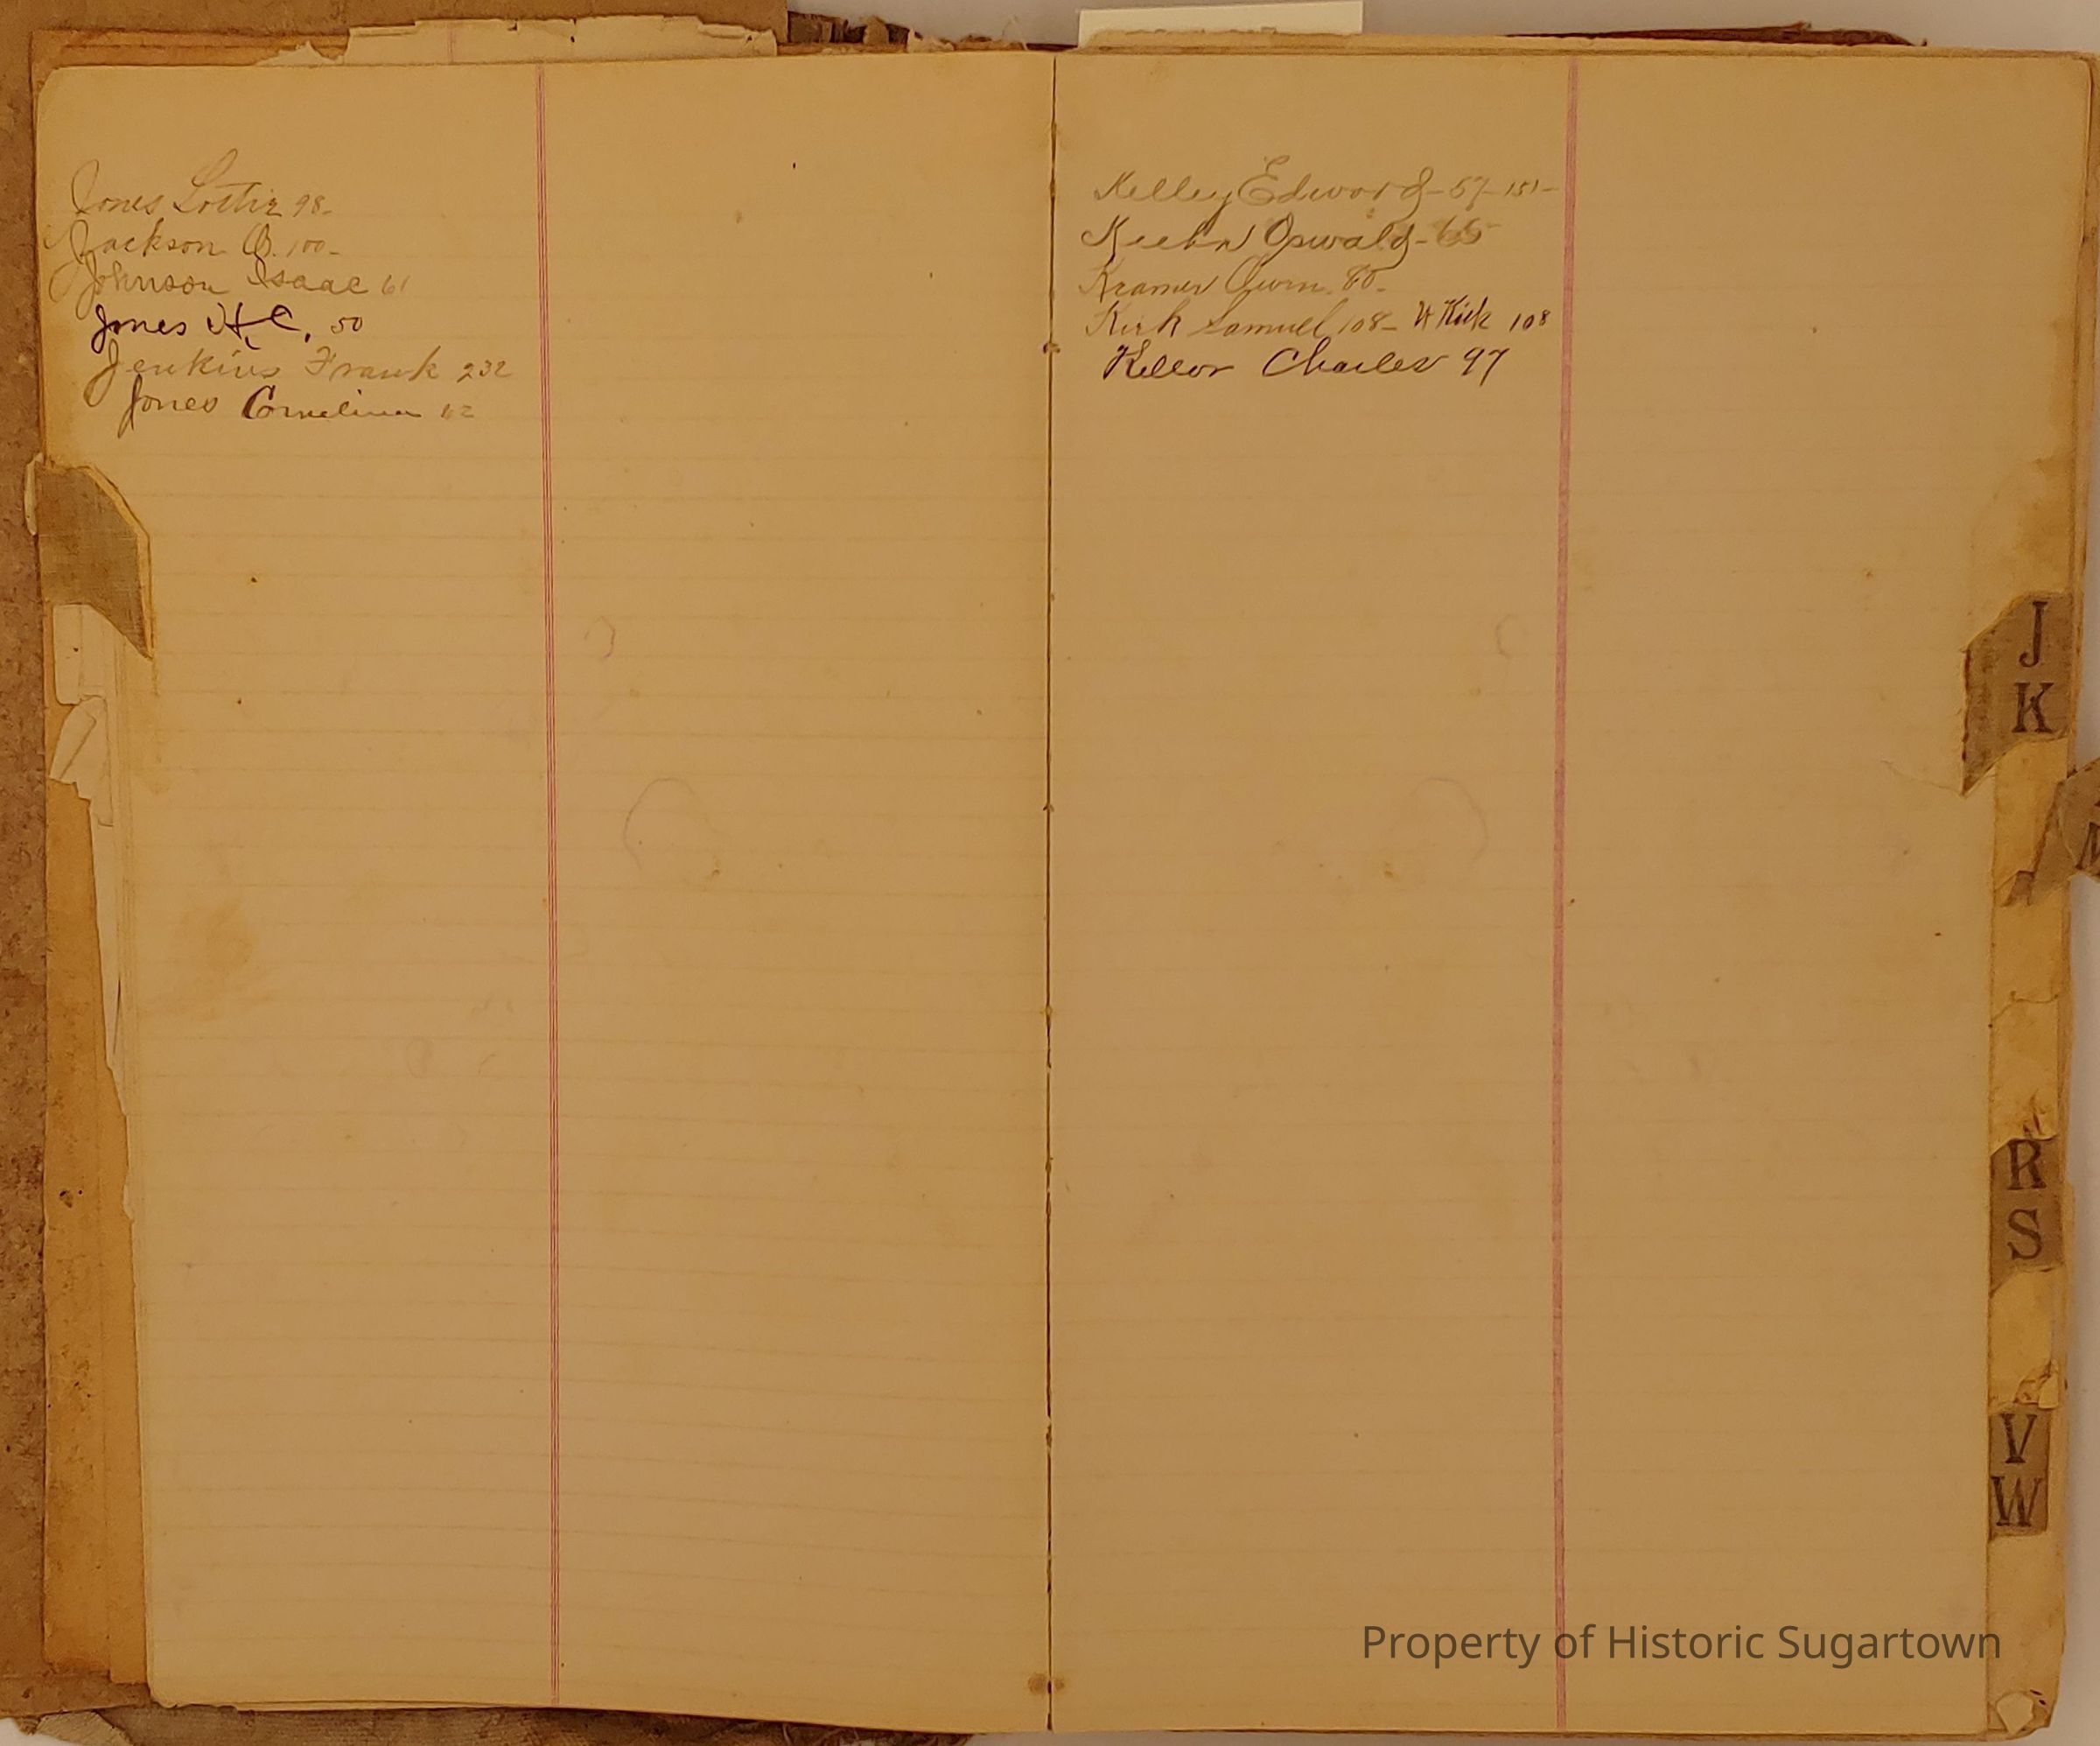 Jones Lottie 98-
Jackson B. 100-
Johnson Isaac 61
Jones H.C. 50
Jenkins Frank 232
Jones Cornelius 62
Kelley Edward - 57 - 151 -
Oswald - 65
Kramer Owen. 80-
Kirk Samuel, 108- Kirk 108
Kellor Charles 97
J
K
R
S
V
W
Property of Historic Sugartown